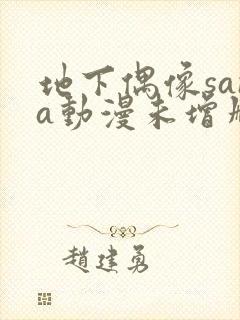 地下偶像sa
a動漫未增
趙建勇